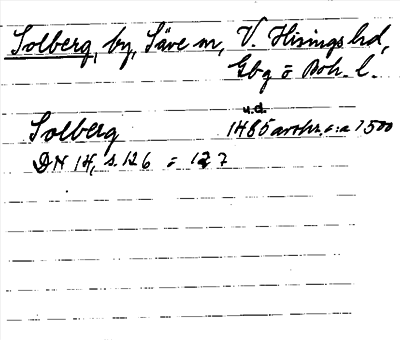 Solberg, by, Säve sn, V. Hisings hd,
Gbg o Boh. l.
u.d.
Solberg 1485 avskr. c:a 1500
DN 14, s. 126 = 127